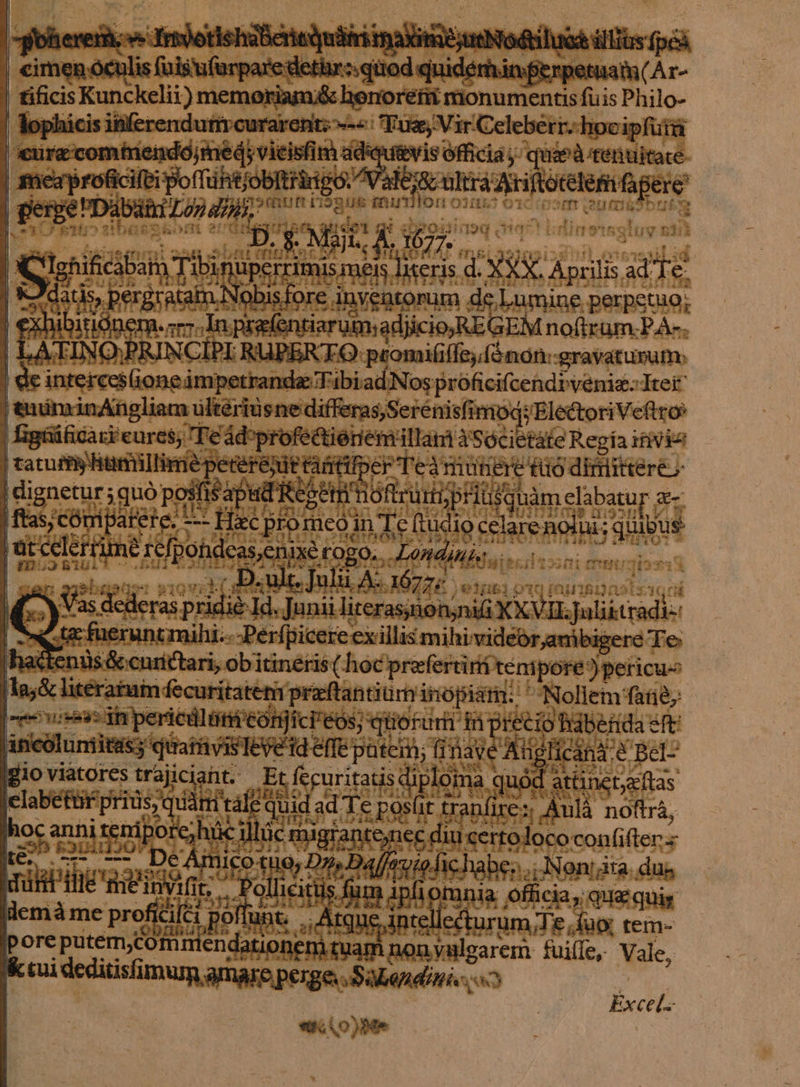 cimen oculis suis usurpare detur: quod quidem in perpetuam (Ar-
tificis Kunckelii) memoriam & honorem monumentis suis Philo-
sophicis inferendum curarent. --- Tuæ, Vir Celeberr. hoc ipsum
curæ commendo, meq; vicissim ad quævis officia, quæ à tenuitate
mea proficisci possunt, obstringo. Vale, & ultra Aristotelem sapere
perge! Dabam Londini,
D. 8. Maji, A. 1677.
Ignificabam Tibi nuperrimis meis literis d. XXX. Aprilis ad Te
datis, pergratam Nobis fore inventorum de Lumine perpetuo;
exhibitionem. --- In præsentiarum, adjicio, REGEM nostrum PA-
LATINO PRINCIPI RUPERTO promisisse, se non gravaturum
de intercessione impetrandæ Tibi ad Nos proficiscendi veniæ. Iter
tuum in Angliam ulterius ne differas, Serenissimoq; Electori Vestro
significari cures, Te ad profectionem illam à Societate Regia invi-
tatum, humillimè petere, ut tantisper Te à munere tuo dimittere
dignetur; quò possis apud Regem nostrum, priusquàm elabatur æ-
stas, comparere. --- Hæc pro meo in Te studio celare nolui; quibus
ut celerrimè respondeas, enixè rogo. Londini,
D. ult. Julii, A. 1677.
Vas dederas pridiè Id. Junii literas, non, nisi XXVII. Julii tradi-
tæ fuerunt mihi. Perspicere ex illis mihi videor, ambigere Te
hactenùs & cunctari, ob itineris (hoc præsertim tempore) pericu-
la, & literarum securitatem præstantium inopiam. Nollem sanè,
in periculum conjici eos, quorum in precio habenda est
incolumitas; quamvis leve id esse putem, si nave Anglicanâ è Bel-
gio viatores trajiciant. Et securitatis diploma quod attinet, æstas
elabetur priùs, quàm tale quid ad Te possit transire; Aulâ nostrâ,
hoc anni tempore, hùc illùc migrante, nec diu certo loco consisten-
te. --- --- De Amico tuo, Dn. Dassovio sic habe; Non ita du-
dum ille me invisit. Pollicitus sum ipsi omnia officia, quæ quis
dem à me proficisci possunt. Atque intellecturum Te suo tem-
pore putem, commendationem tuam non vulgarem fuisse. Vale,
& tui deditissimum amare perge. Londini
Excel-